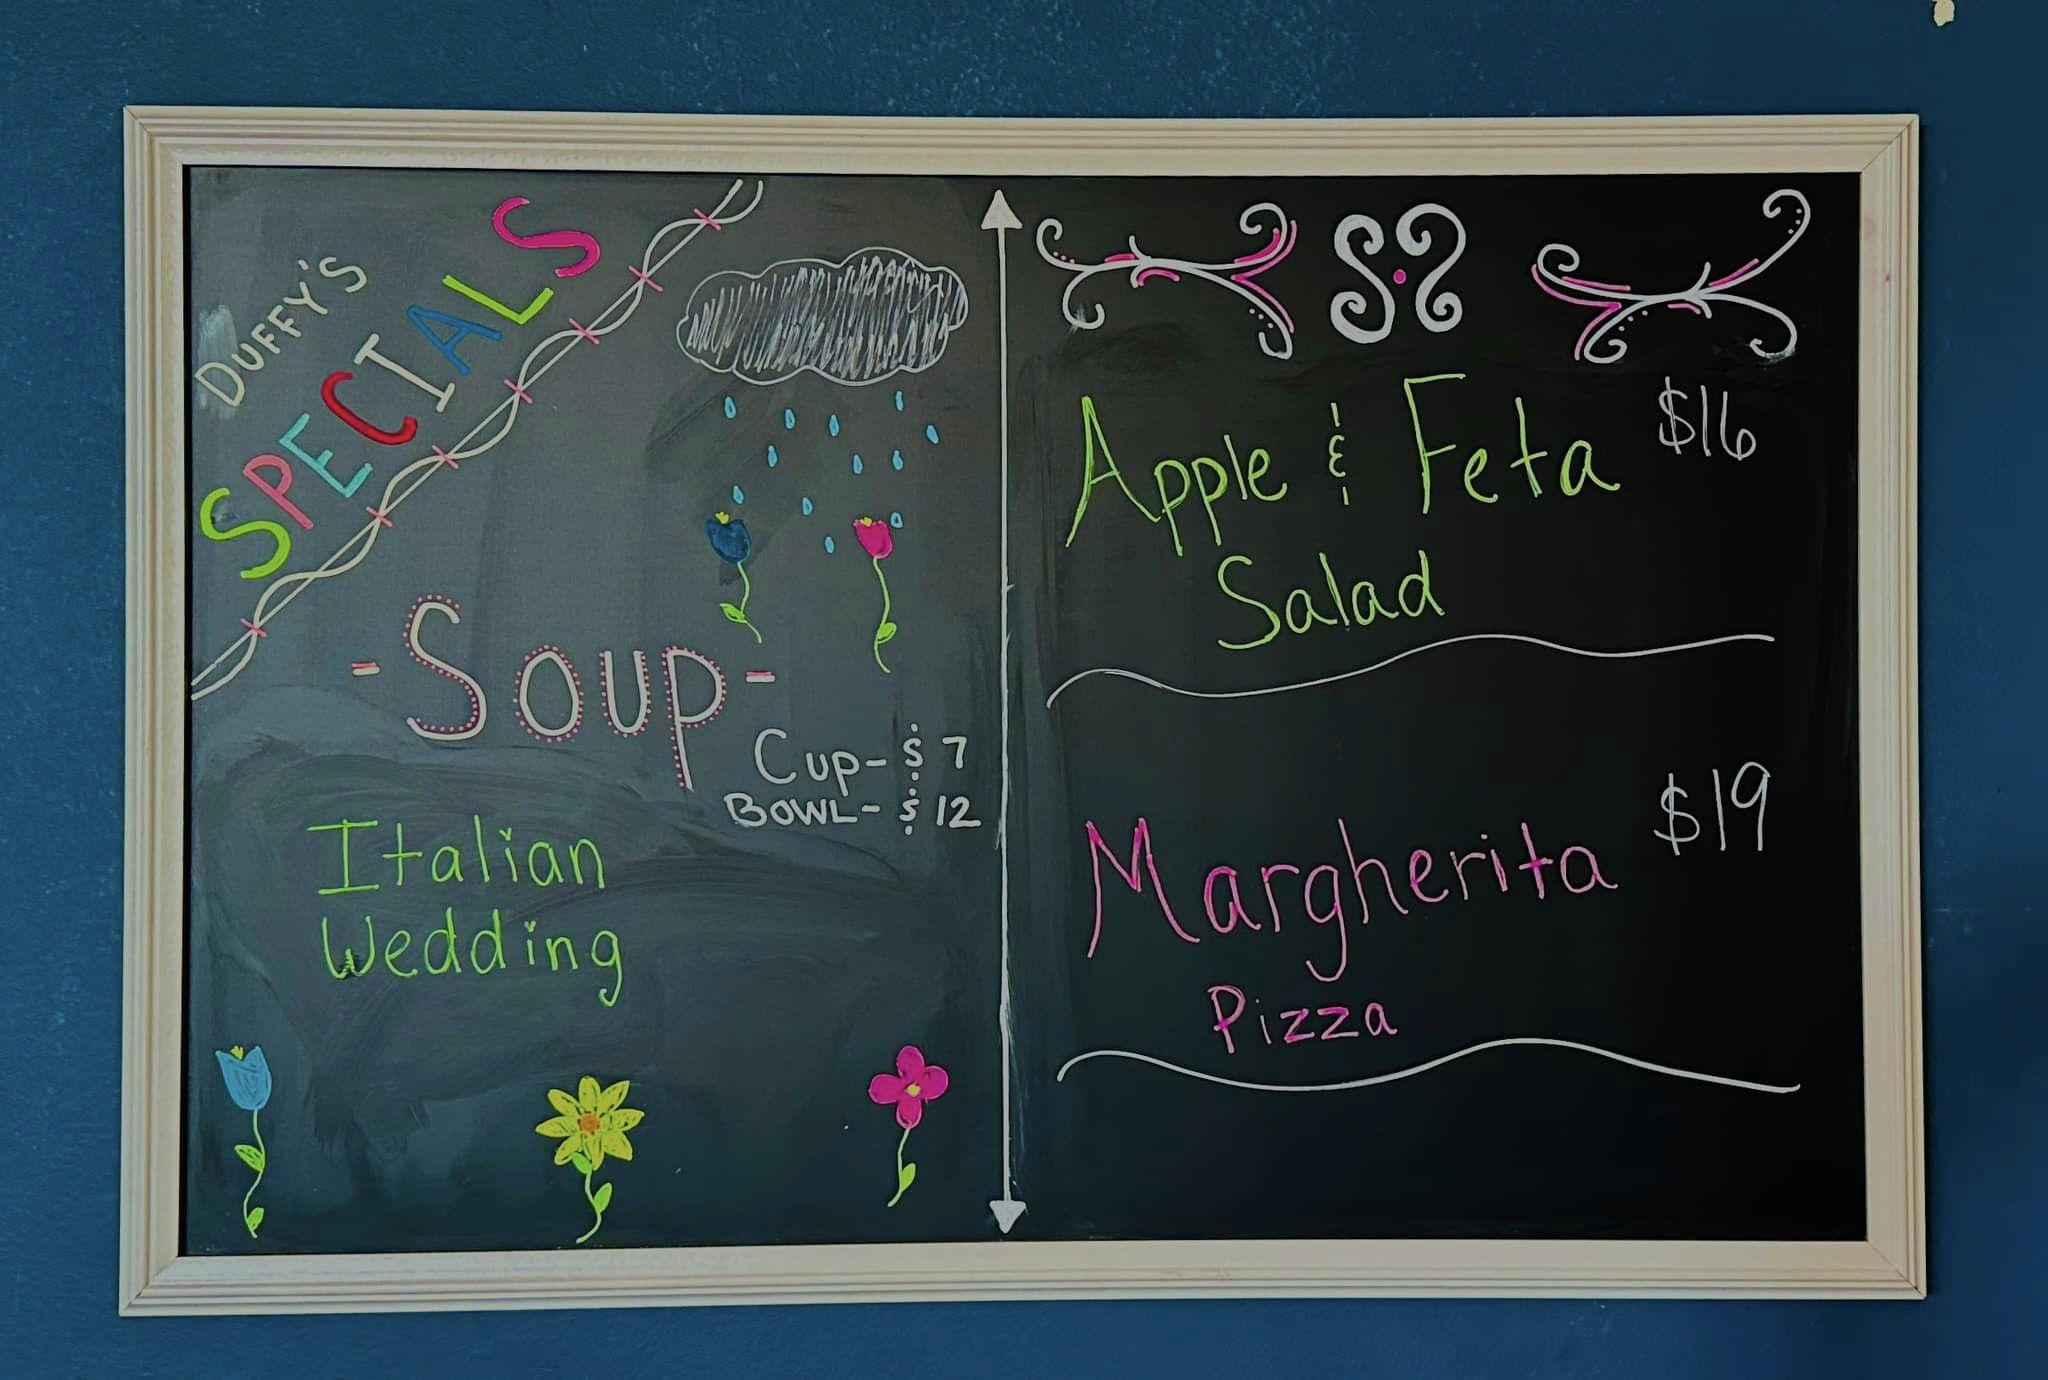 DUFFY'S
SPECIALS
-Soup-
Cup- $7
BOWL- $12
Italian
Wedding
Apple & Feta $16
Salad
Margherita $19
Pizza